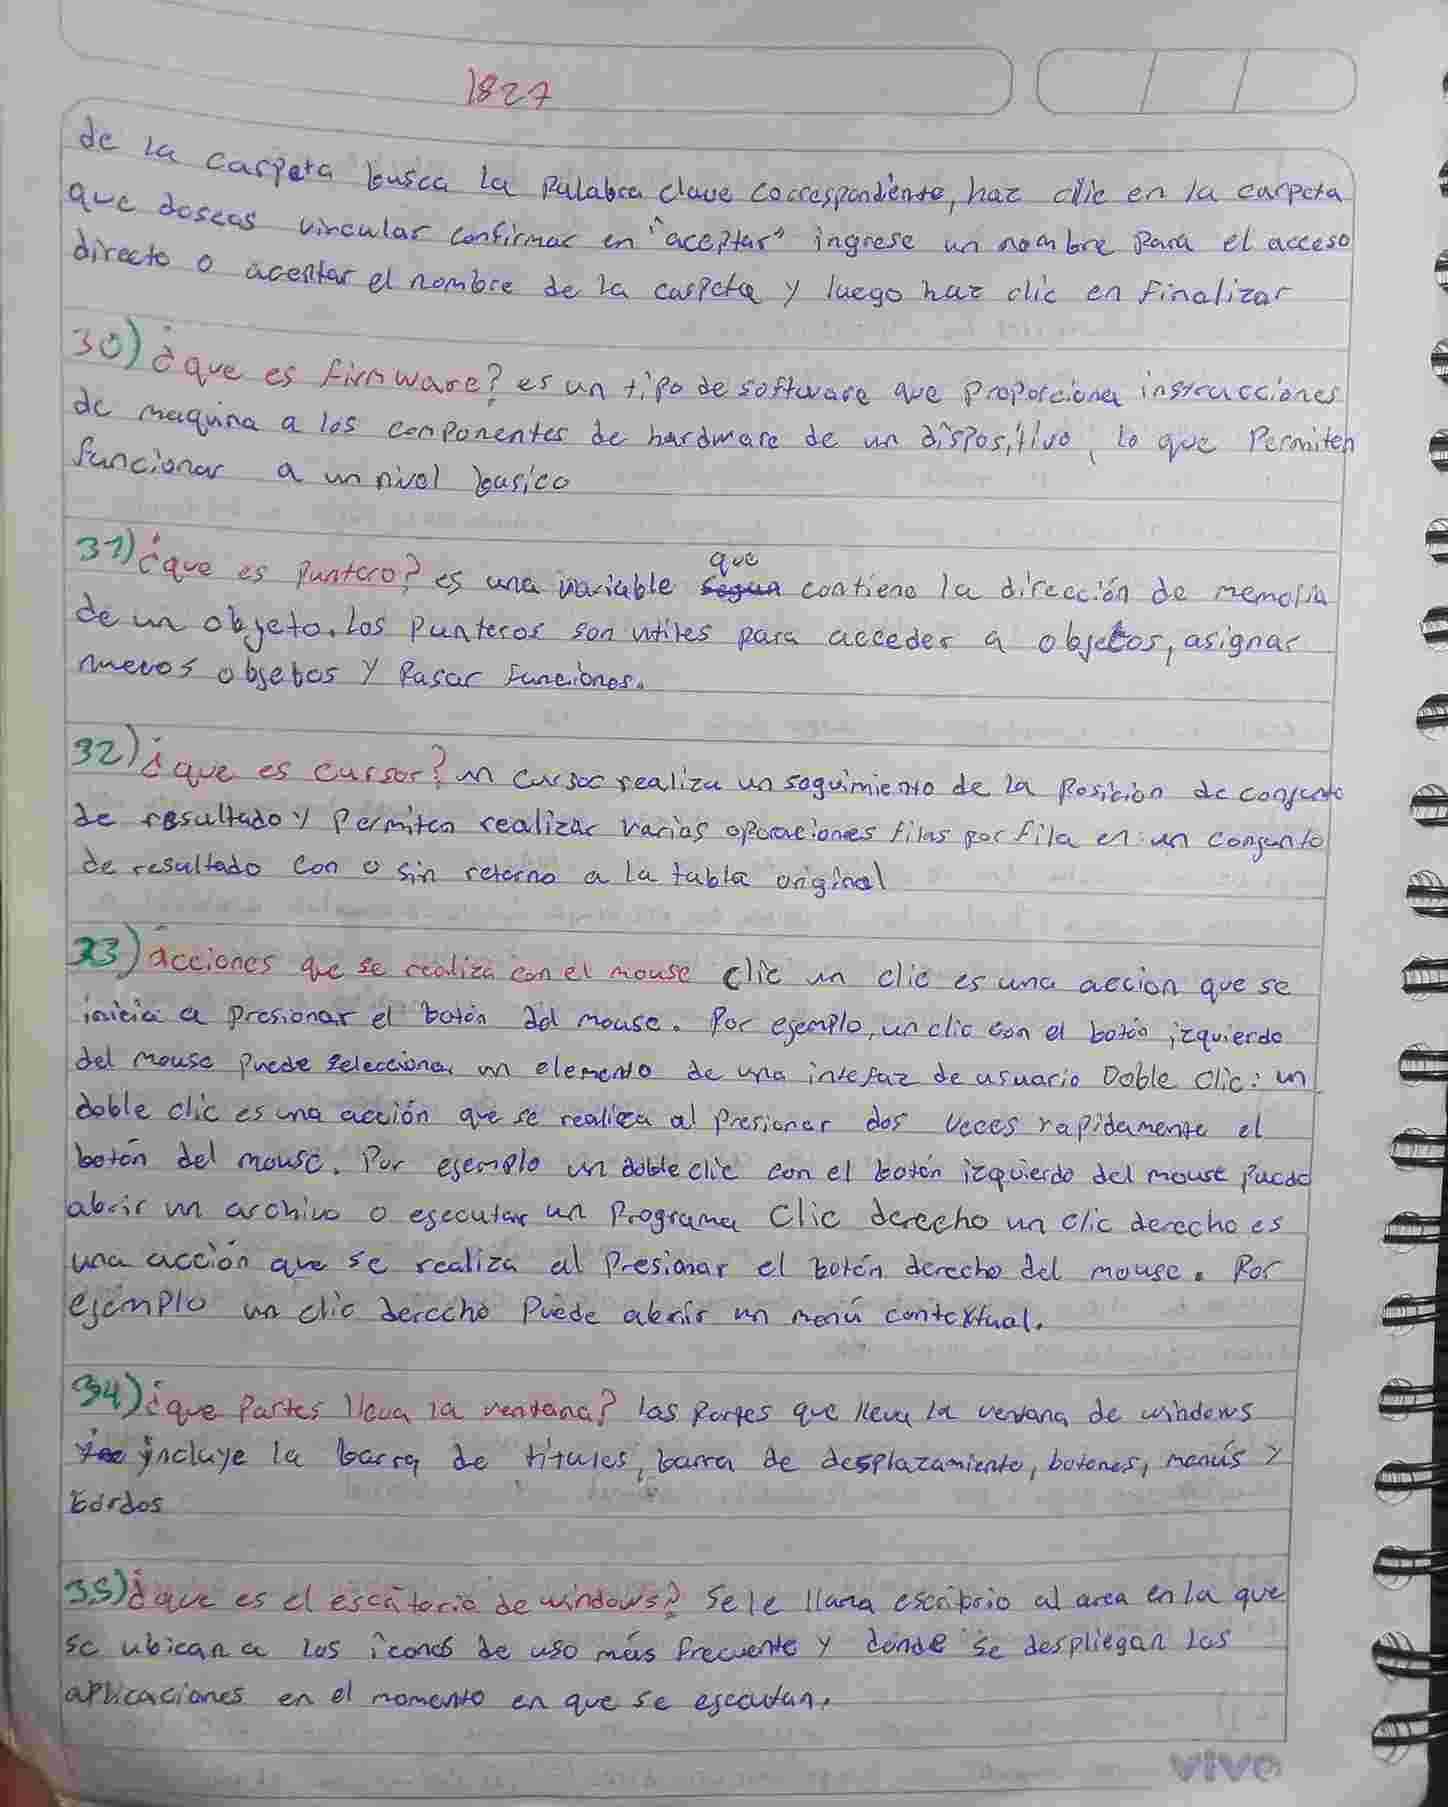 1827
de la carpeta busca la Palabra clave correspondiente, haz clic en la carpeta
que deseas vincular confirmar en "aceptar" ingrese un nombre para el acceso
directo o aceptar el nombre de la carpeta y luego haz clic en Finalizar
30) ¿que es firmware? es un tipo de software que proporciona instrucciones
de maquina a los componentes de hardware de un dispositivo, lo que Permiten
funcionar a un nivel basico
31) ¿que es Puntero? es una variable que contiene la dirección de memoria
de un objeto. Los Punteros son utiles para acceder a objetos, asignar
nuevos objetos y Pasar funciones.
32) ¿que es cursor? un cursor realiza un seguimiento de la Posicion de conjunto
de resultado y Permiten realizar varias operaciones filas por fila en un conjunto
de resultado con o sin retorno a la tabla original
33) acciones que se realiza con el mouse clic un clic es una accion que se
inicia a Presionar el botón del mouse. Por ejemplo, un clic con el botón izquierdo
del mouse puede seleccionar un elemento de una interfaz de usuario Doble Clic: un
doble clic es una acción que se realiza al Presionar dos veces rapidamente el
botón del mouse. Por ejemplo un doble clic con el botón izquierdo del mouse Puede
abrir un archivo o ejecutar un Programa Clic derecho un clic derecho es
una acción que se realiza al Presionar el botón derecho del mouse. Por
ejemplo un clic derecho Puede abrir un menú contextual.
34) ¿que Partes lleva la ventana? las Partes que lleva la ventana de windows
incluye la barra de titules, barra de desplazamiento, botones, menús y
bordos
35) ¿que es el escritorio de windows? Se le llama escribrio al area en la que
se ubican a los íconos de uso más frecuente y donde se despliegan las
aplicaciones en el momento en que se escutan.
vivo